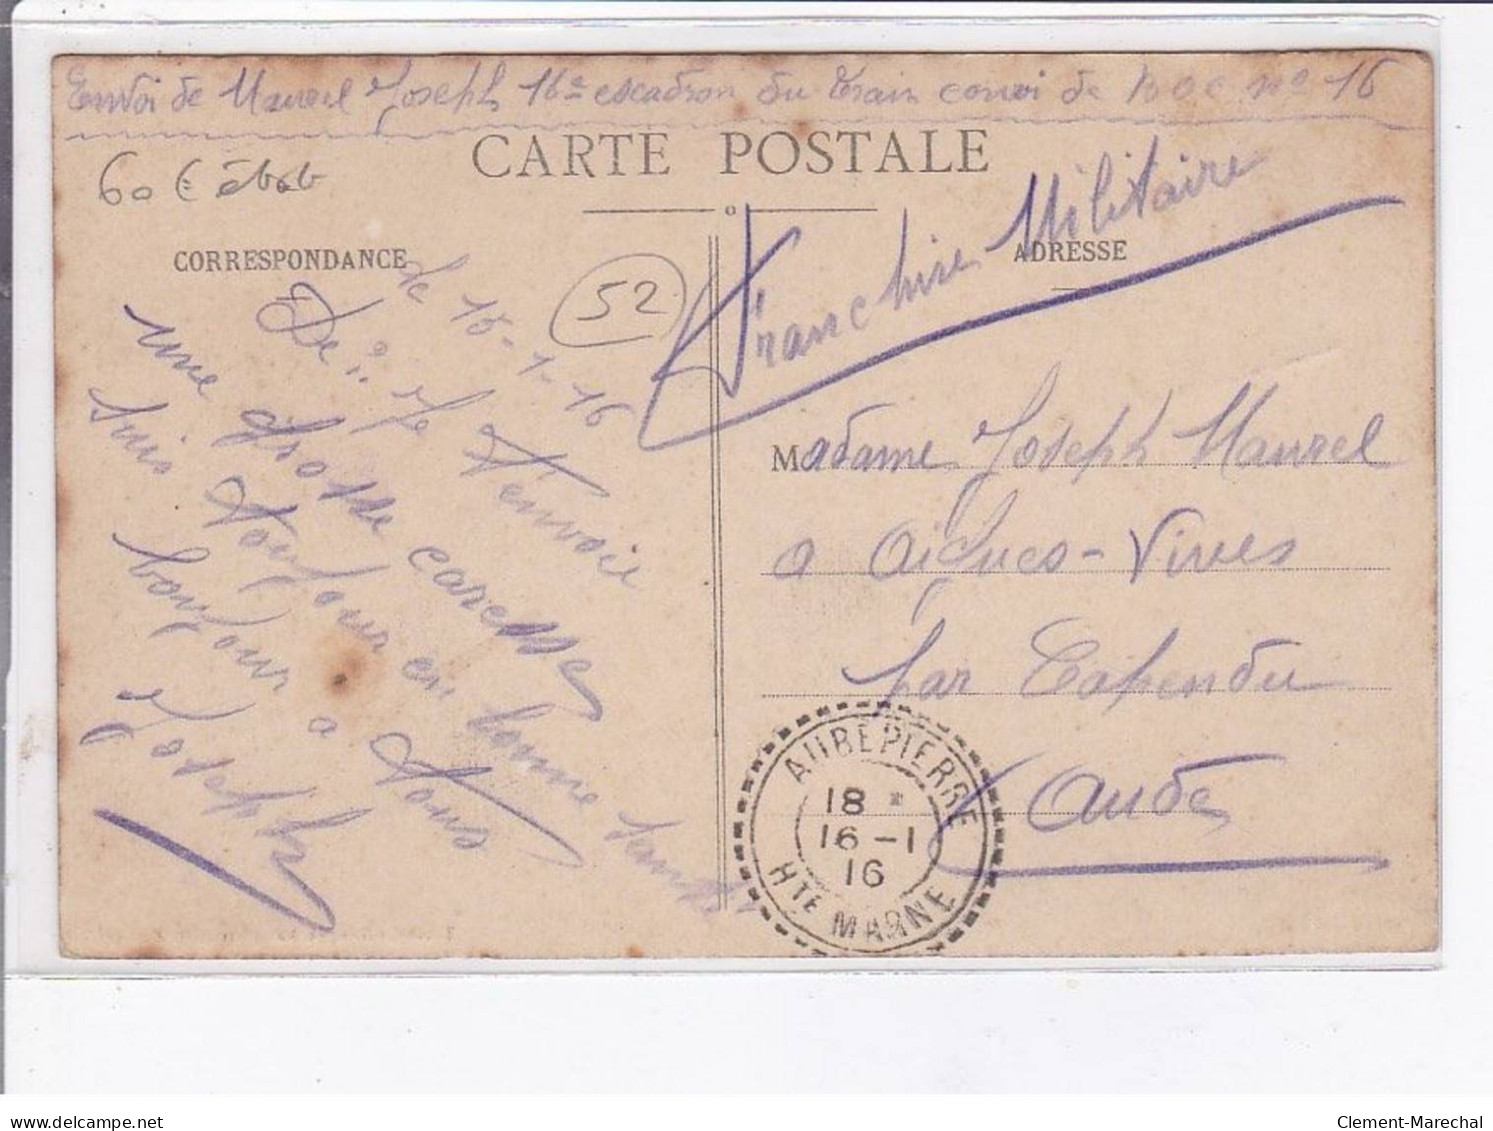 Envoi de Maurel Joseph 16e escadron du train convoi de n° 16
CARTE POSTALE
60 €
CORRESPONDANCE
ADRESSE
52
Franchise Militaire
le 15-1-16
De je t'envoie
une grosse caresse
suis toujour en bonne santé
bonjour a tous
Joseph
Madame Joseph Maurel
a Aigues-Vives
par Capendu
Aude
AUBEPIERRE
18 *
16 - 1
16
HTE MARNE
delcampe.net
Clement-Marechal